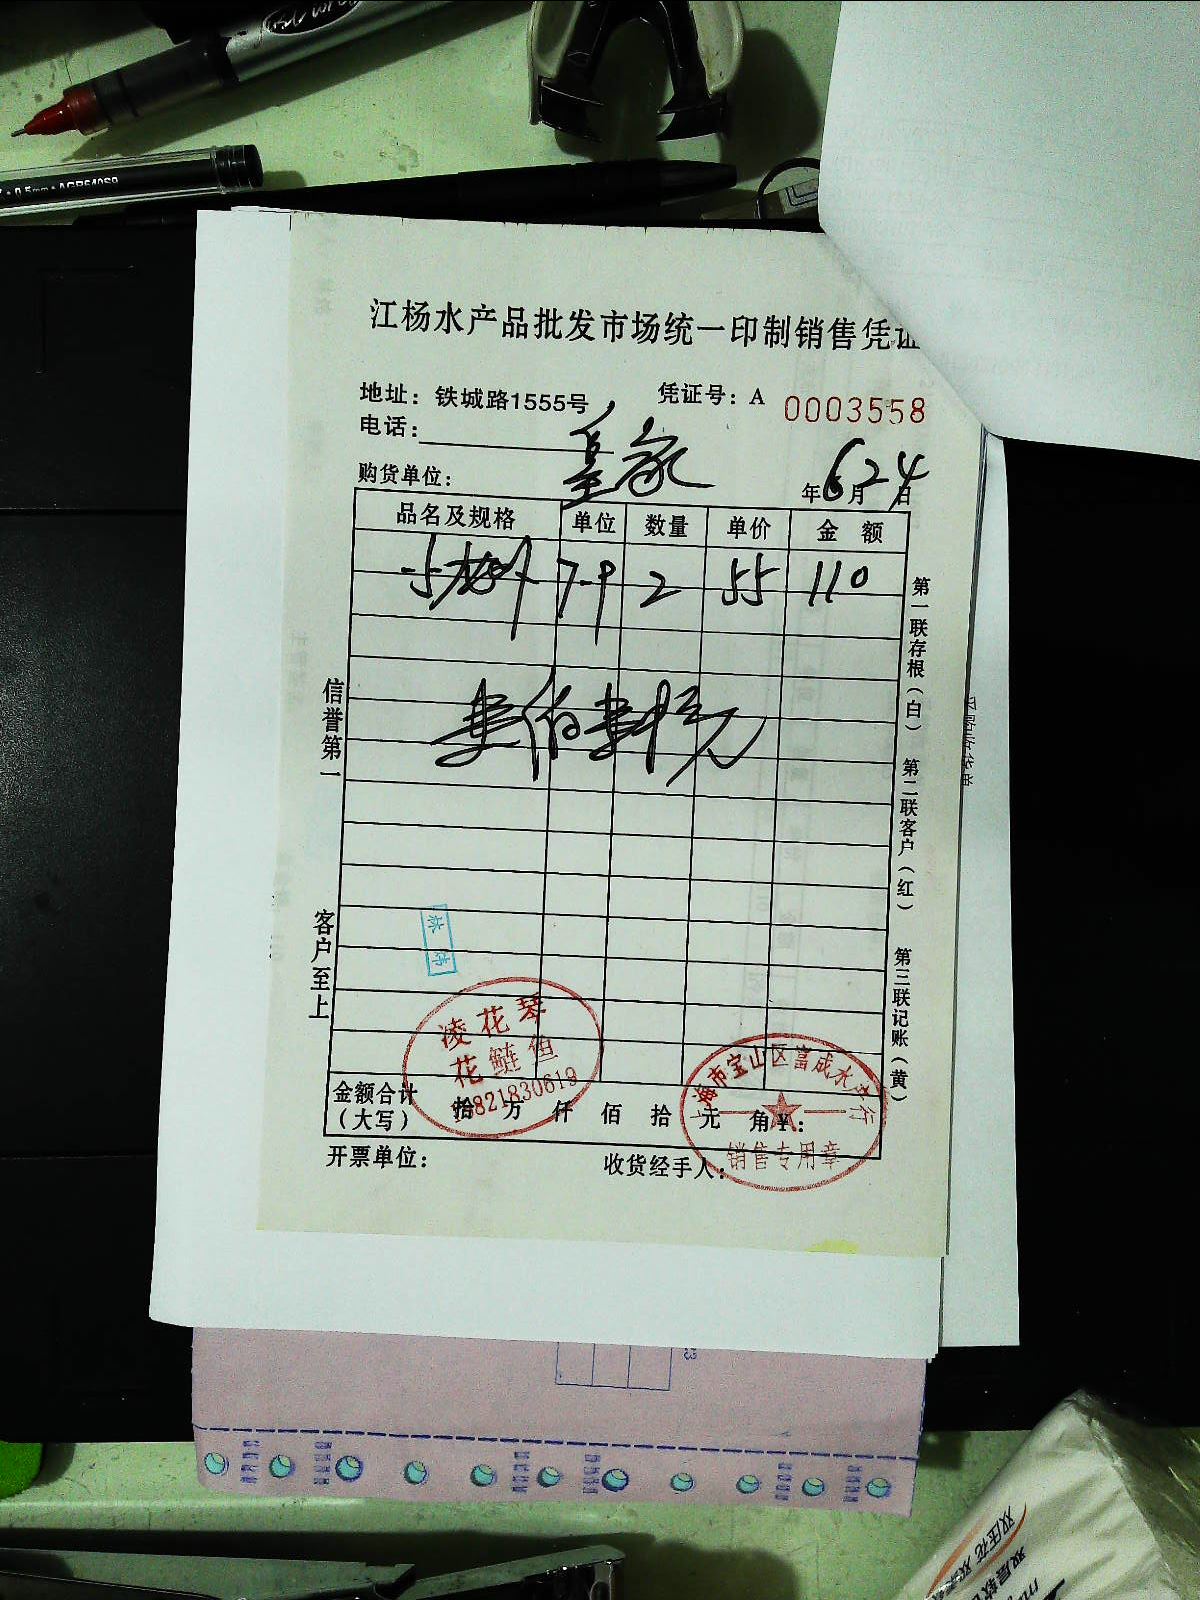 0.5mm·AGP640S9
江杨水产品批发市场统一印制销售凭证
地址：铁城路1555号 凭证号：A 0003558
电话：
购货单位： 皇家 年6月24日
品名及规格 单位 数量 单价 金 额
7-9 2 55 110
壹佰壹拾元
信誉第一
客户至上
第一联存根（白） 第二联客户（红） 第三联记账（黄）
凌花琴
花鲢鱼
13821830619
上海市宝山区富成水产行
销售专用章
金额合计（大写） 拾 万 仟 佰 拾 元 角 ¥：
开票单位： 收货经手人：
双压花
双层软